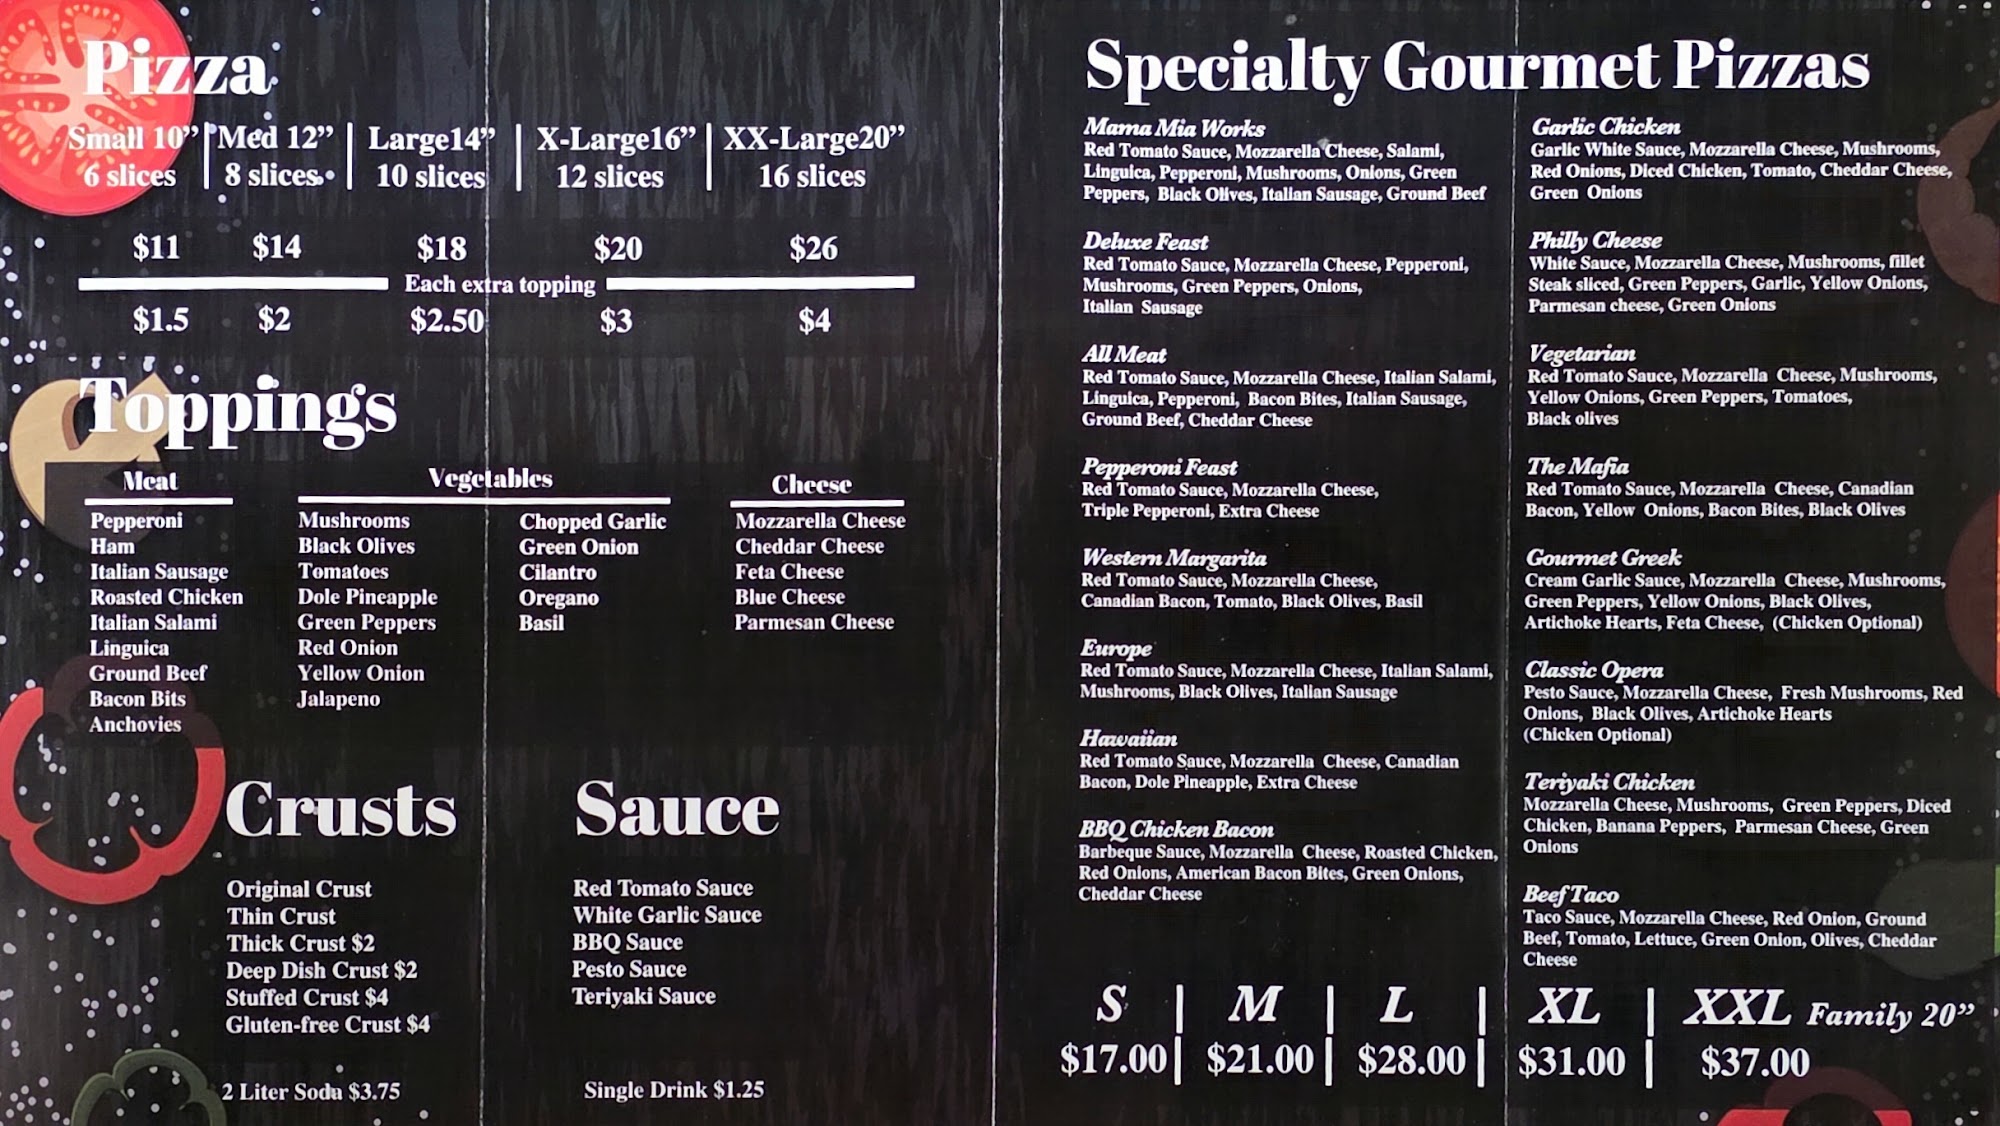 Pizza
Small 10” | Med 12” | Large14” | X-Large16” | XX-Large20”
6 slices | 8 slices | 10 slices | 12 slices | 16 slices
$11 $14 $18 $20 $26
Each extra topping
$1.5 $2 $2.50 $3 $4
Toppings
Meat
Pepperoni
Ham
Italian Sausage
Roasted Chicken
Italian Salami
Linguica
Ground Beef
Bacon Bits
Anchovies
Vegetables
Mushrooms
Black Olives
Tomatoes
Dole Pineapple
Green Peppers
Red Onion
Yellow Onion
Jalapeno
Chopped Garlic
Green Onion
Cilantro
Oregano
Basil
Cheese
Mozzarella Cheese
Cheddar Cheese
Feta Cheese
Blue Cheese
Parmesan Cheese
Crusts
Original Crust
Thin Crust
Thick Crust $2
Deep Dish Crust $2
Stuffed Crust $4
Gluten-free Crust $4
2 Liter Soda $3.75
Sauce
Red Tomato Sauce
White Garlic Sauce
BBQ Sauce
Pesto Sauce
Teriyaki Sauce
Single Drink $1.25
Specialty Gourmet Pizzas
Mama Mia Works
Red Tomato Sauce, Mozzarella Cheese, Salami,
Linguica, Pepperoni, Mushrooms, Onions, Green
Peppers, Black Olives, Italian Sausage, Ground Beef
Deluxe Feast
Red Tomato Sauce, Mozzarella Cheese, Pepperoni,
Mushrooms, Green Peppers, Onions,
Italian Sausage
All Meat
Red Tomato Sauce, Mozzarella Cheese, Italian Salami,
Linguica, Pepperoni, Bacon Bites, Italian Sausage,
Ground Beef, Cheddar Cheese
Pepperoni Feast
Red Tomato Sauce, Mozzarella Cheese,
Triple Pepperoni, Extra Cheese
Western Margarita
Red Tomato Sauce, Mozzarella Cheese,
Canadian Bacon, Tomato, Black Olives, Basil
Europe
Red Tomato Sauce, Mozzarella Cheese, Italian Salami,
Mushrooms, Black Olives, Italian Sausage
Hawaiian
Red Tomato Sauce, Mozzarella Cheese, Canadian
Bacon, Dole Pineapple, Extra Cheese
BBQ Chicken Bacon
Barbeque Sauce, Mozzarella Cheese, Roasted Chicken,
Red Onions, American Bacon Bites, Green Onions,
Cheddar Cheese
Garlic Chicken
Garlic White Sauce, Mozzarella Cheese, Mushrooms,
Red Onions, Diced Chicken, Tomato, Cheddar Cheese,
Green Onions
Philly Cheese
White Sauce, Mozzarella Cheese, Mushrooms, fillet
Steak sliced, Green Peppers, Garlic, Yellow Onions,
Parmesan cheese, Green Onions
Vegetarian
Red Tomato Sauce, Mozzarella Cheese, Mushrooms,
Yellow Onions, Green Peppers, Tomatoes,
Black olives
The Mafia
Red Tomato Sauce, Mozzarella Cheese, Canadian
Bacon, Yellow Onions, Bacon Bites, Black Olives
Gourmet Greek
Cream Garlic Sauce, Mozzarella Cheese, Mushrooms,
Green Peppers, Yellow Onions, Black Olives,
Artichoke Hearts, Feta Cheese, (Chicken Optional)
Classic Opera
Pesto Sauce, Mozzarella Cheese, Fresh Mushrooms, Red
Onions, Black Olives, Artichoke Hearts
(Chicken Optional)
Teriyaki Chicken
Mozzarella Cheese, Mushrooms, Green Peppers, Diced
Chicken, Banana Peppers, Parmesan Cheese, Green
Onions
Beef Taco
Taco Sauce, Mozzarella Cheese, Red Onion, Ground
Beef, Tomato, Lettuce, Green Onion, Olives, Cheddar
Cheese
S | M | L | XL | XXL Family 20”
$17.00 | $21.00 | $28.00 | $31.00 | $37.00